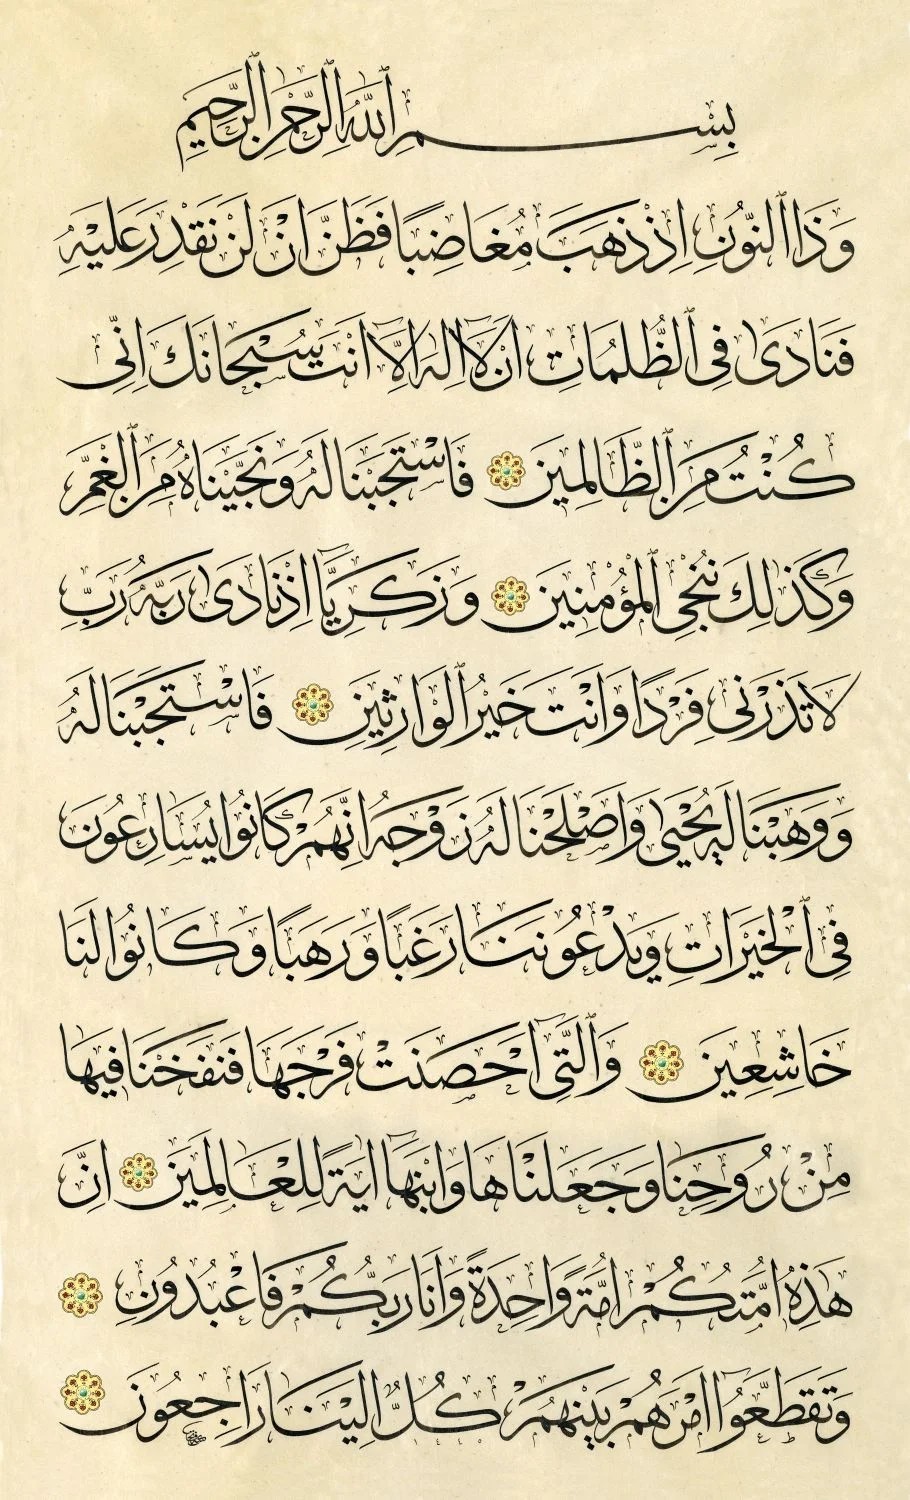 بِسْمِ ٱللَّهِ ٱلرَّحْمٰنِ ٱلرَّحِيمِ
وَذَا ٱلنُّونِ اِذْ ذَهَبَ مُغَاضِبًا فَظَنَّ اَنْ لَنْ نَقْدِرَ عَلَيْهِ
فَنَادَىٰ فِى ٱلظُّلُمَاتِ اَنْ لَٓا اِلٰهَ اِلَّٓا اَنْتَ سُبْحَانَكَ اِنِّى
كُنْتُ مِنَ ٱلظَّالِمِينَ فَاسْتَجَبْنَا لَهُ وَنَجَّيْنَاهُ مِنَ ٱلْغَمِّ
وَكَذٰلِكَ نُنْجِى ٱلْمُؤْمِنِينَ وَزَكَرِيَّٓا اِذْ نَادَىٰ رَبَّهُ رَبِّ
لَا تَذَرْنِى فَرْدًا وَاَنْتَ خَيْرُ ٱلْوَارِثِينَ فَاسْتَجَبْنَا لَهُ
وَوَهَبْنَا لَهُ يَحْيَىٰ وَاَصْلَحْنَا لَهُ زَوْجَهُ اِنَّهُمْ كَانُوا يُسَارِعُونَ
فِى ٱلْخَيْرَاتِ وَيَدْعُونَنَا رَغَبًا وَرَهَبًا وَكَانُوا لَنَا
خَاشِعِينَ وَٱلَّتِٓى اَحْصَنَتْ فَرْجَهَا فَنَفَخْنَا فِيهَا
مِنْ رُوحِنَا وَجَعَلْنَاهَا وَابْنَهَٓا اٰيَةً لِلْعَالَمِينَ اِنَّ
هٰذِهِٓ اُمَّتُكُمْ اُمَّةً وَاحِدَةً وَاَنَا رَبُّكُمْ فَاعْبُدُونِ
وَتَقَطَّعُٓوا اَمْرَهُمْ بَيْنَهُمْ كُلٌّ اِلَيْنَا رَاجِعُونَ